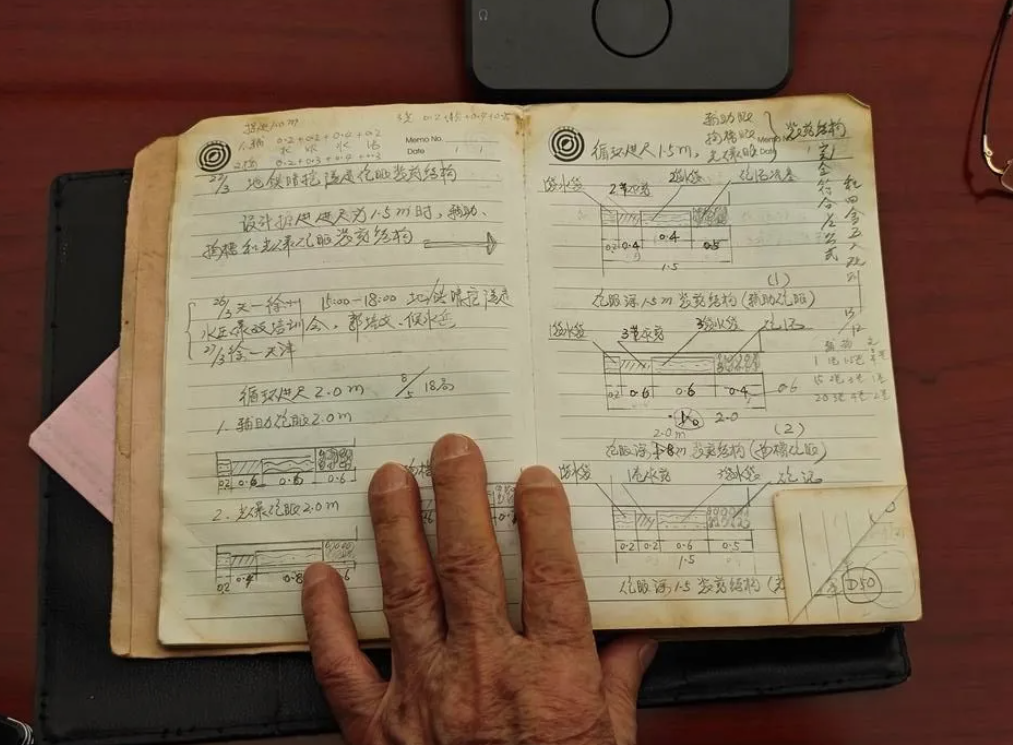 0.2+0.2+0.4+0.2
水 炮 水 泥
0.2+0.3+0.4+0.3
Memo No.
Date
22/3 地铁暗挖隧道炮眼装药结构
设计掘进进尺为1.5m时，辅助、
掏槽和光爆炮眼装药结构
26/3 天—徐州 15:00-18:00 地铁暗挖隧道
水压爆破培训会，
27/3 徐—天津
循环进尺2.0m 8/5 18局
1. 辅助炮眼2.0m
0.2 0.6 0.6 0.6
2. 光爆炮眼2.0m
0.2 0.4 0.8
辅助眼
掏槽眼
光爆眼
装药结构
循环进尺1.5m,
Memo No.
Date
完全符合公式
和四舍五入
1袋水袋 2节炸药 2袋水袋 炮泥
0.2 0.4 0.4 0.5
1.5
(1)
炮眼深1.5m装药结构(辅助炮眼)
1袋水袋 3节炸药 3袋水袋 炮泥
0.2 0.6 0.6 0.4 0.6
2.0
2.0m
(2)
炮眼深1.8m装药结构(掏槽炮眼)
1袋水袋 1节炸药 3袋水袋 炮泥
0.2 0.2 0.6 0.5
1.5
炮眼深1.5装药结构
D50